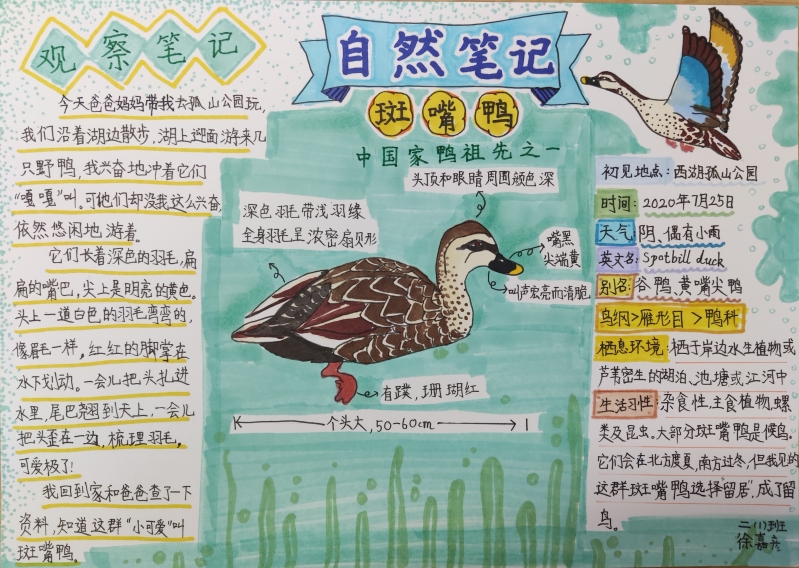 观察笔记
今天爸爸妈妈带我去孤山公园玩,
我们沿着湖边散步,湖上迎面游来几
只野鸭,我兴奋地冲着它们
“嘎嘎”叫。可他们却没我这么兴奋,
依然悠闲地游着。
它们长着深色的羽毛,扁
扁的嘴巴,尖上是明亮的黄色。
头上一道白色的羽毛弯弯的,
像眉毛一样,红红的脚掌在
水下划动。一会儿把头扎进
水里,尾巴翘到天上,一会儿
把头歪在一边,梳理羽毛,
可爱极了!
我回到家和爸爸查了一下
资料,知道这群“小可爱”叫
斑嘴鸭。
自然笔记
斑嘴鸭
中国家鸭祖先之一
头顶和眼睛周围颜色深
深色羽毛带浅羽缘
全身羽毛呈浓密扇贝形
嘴黑
尖端黄
叫声宏亮而清脆
有蹼,珊瑚红
个头大,50-60cm
初见地点:西湖孤山公园
时间:2020年7月25日
天气:阴、偶有小雨
英文名:Spotbill duck
别名:谷鸭、黄嘴尖鸭
鸟纲>雁形目>鸭科
栖息环境:栖于岸边水生植物或
芦苇密生的湖泊、池塘或江河中
生活习性:杂食性,主食植物、螺
类及昆虫。大部分斑嘴鸭是候鸟。
它们会在北方度夏,南方过冬,但我见的
这群斑嘴鸭选择“留居”,成了留
鸟。
二(1)班
徐嘉彦